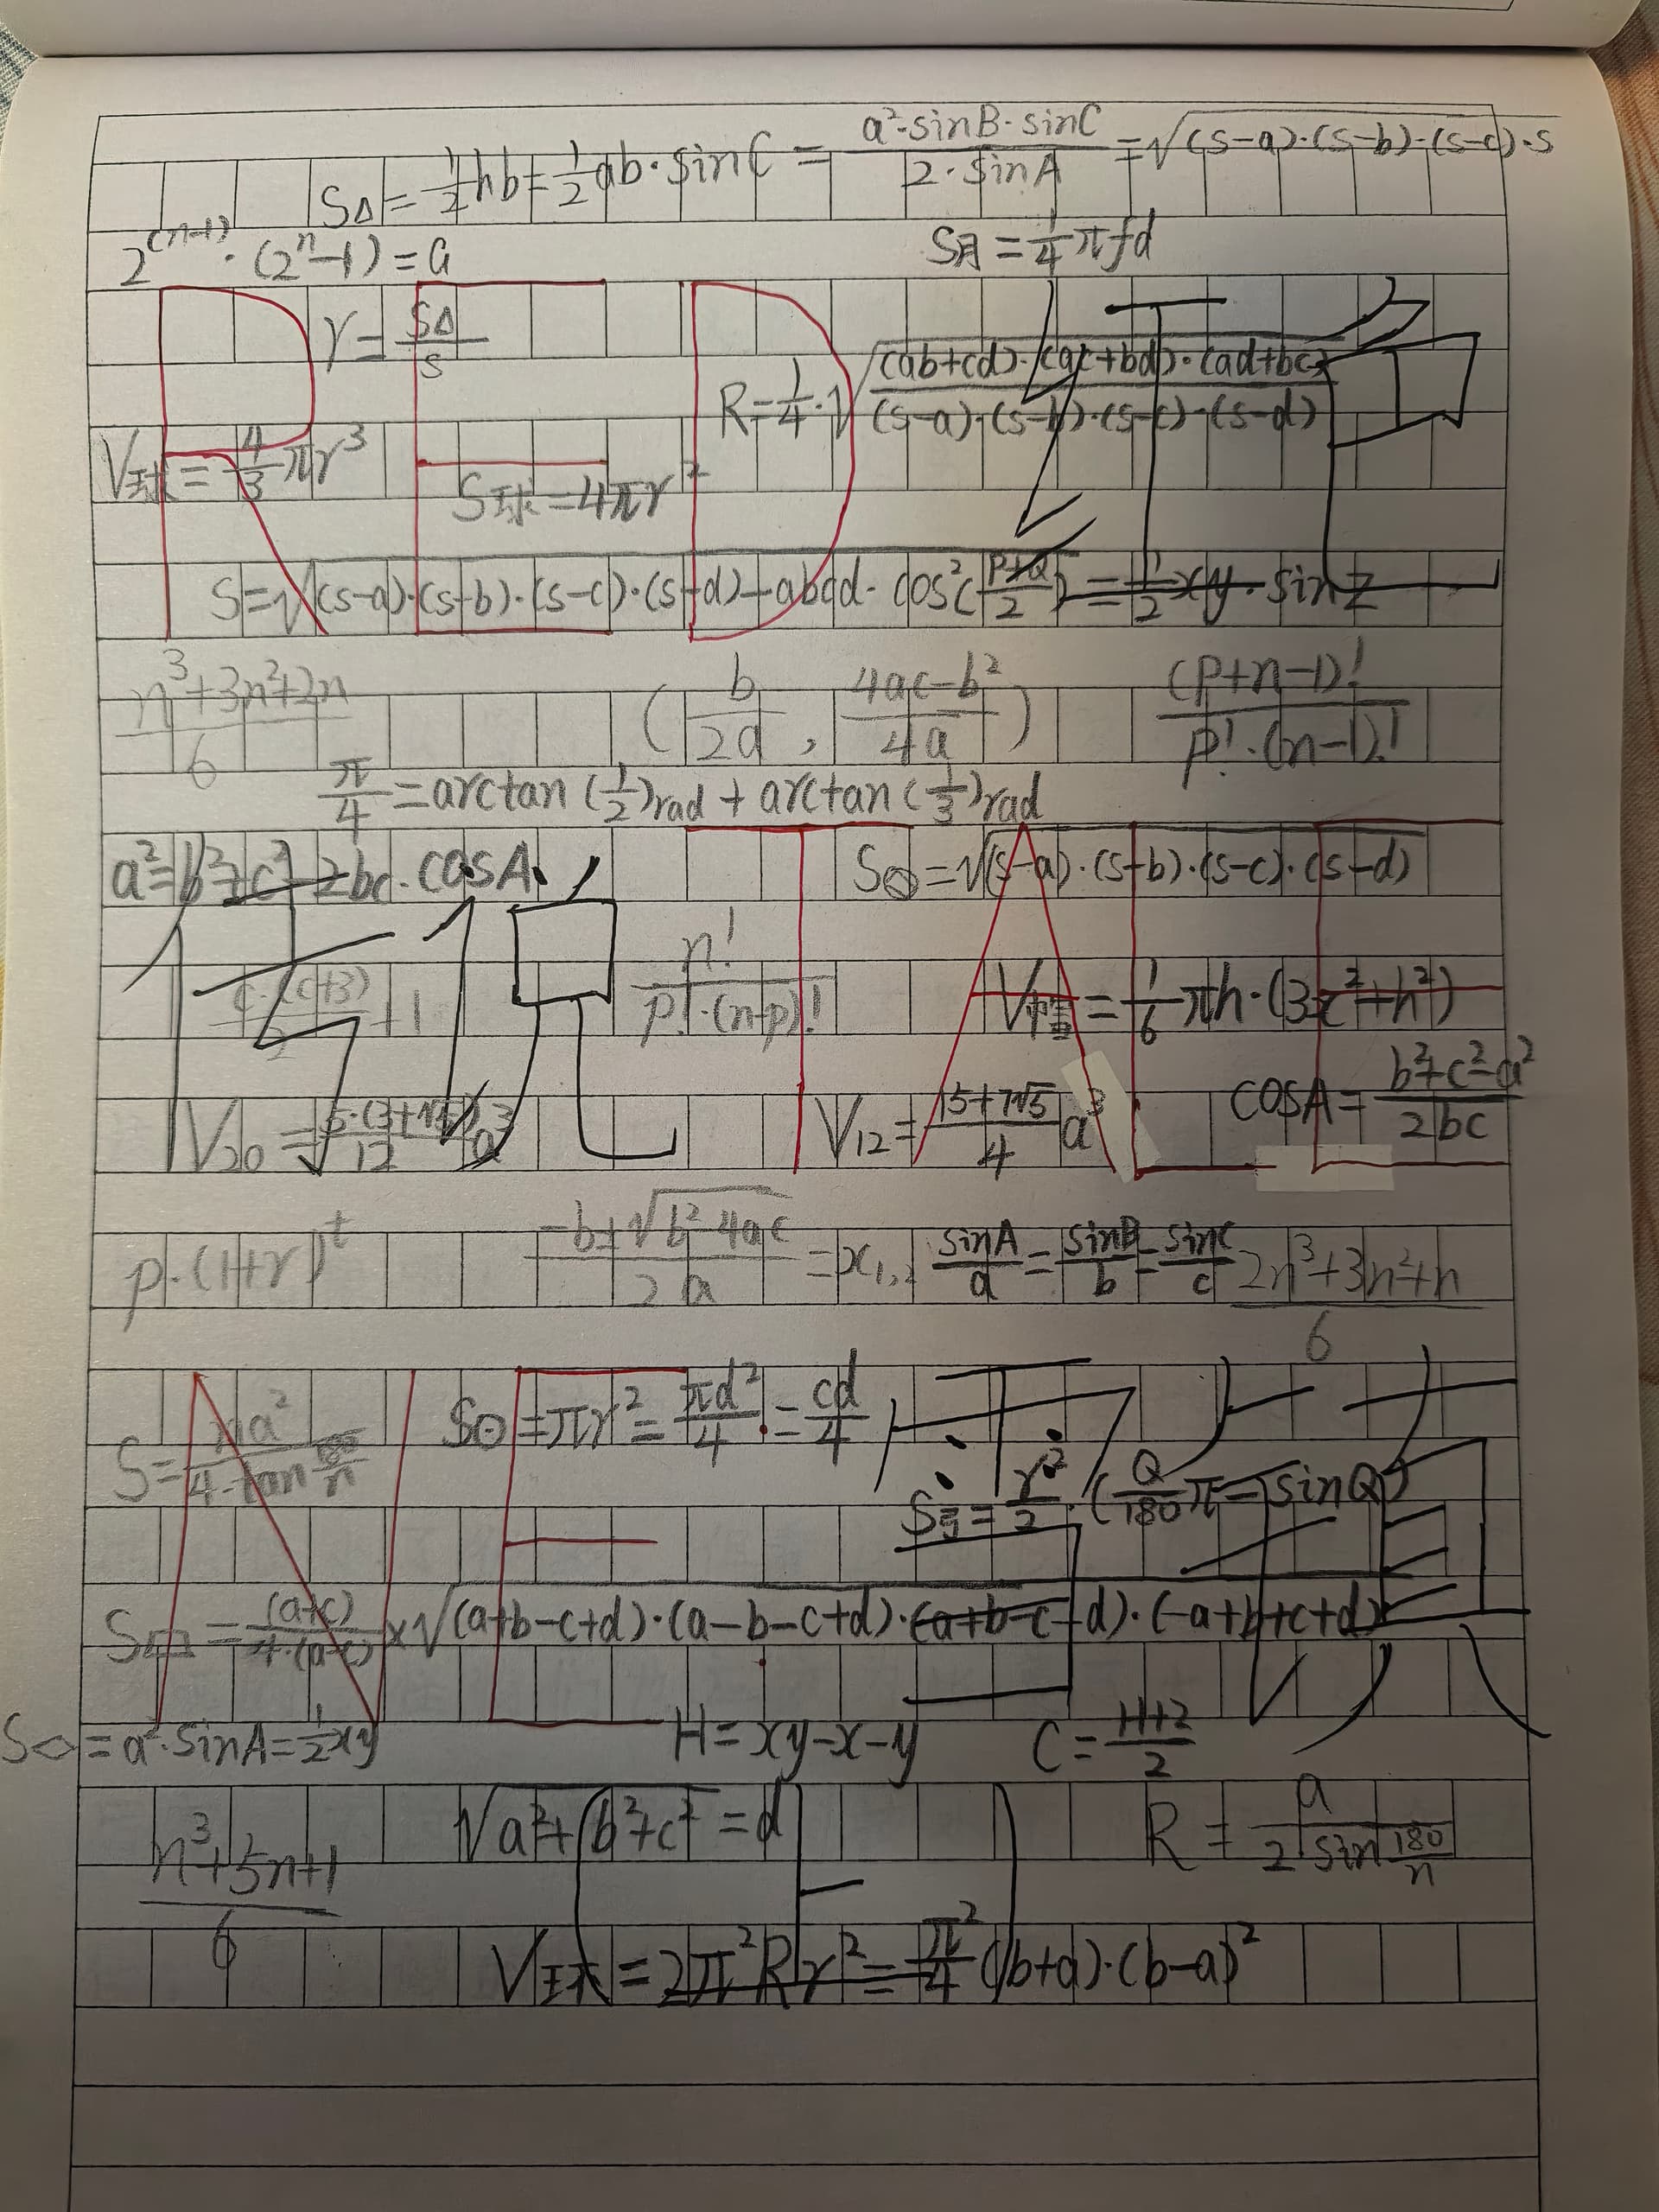 S△ = 1/2 hb = 1/2 ab·sinC = a²·sinB·sinC / 2·sinA = √(s-a)·(s-b)·(s-c)·s
2^(n-1)·(2^n-1)=a
S月 = 1/4 πfd
RED 红
r = S△/s
R = 1/4·√(ab+cd)·(ac+bd)·(ad+bc) / (s-a)·(s-b)·(s-c)·(s-d)
V球 = 4/3 πr³
S球 = 4πr²
S = √(s-a)·(s-b)·(s-c)·(s-d) - abcd·cos²(P+Q/2) = 1/2 xy·sin z
n³+3n²+2n / 6
( b/2a , 4ac-b² / 4a )
(p+n-1)! / p!·(n-1)!
π/4 = arctan(1/2)rad + arctan(1/3)rad
a² = b²+c²-2bc·cosA
S = √(s-a)·(s-b)·(s-c)·(s-d)
传说 TALE
c·(c+3) / 2 + 1
n! / p!·(n-p)!
V = 1/6 πh·(3r²+h²)
V20 = 5·(3+√5) / 12 a³
V12 = 15+7√5 / 4 a³
cosA = b²+c²-a² / 2bc
p·(1+r)^t
-b±√b²-4ac / 2a = x1,2
sinA/a = sinB/b = sinC/c
2n³+3n²+n / 6
NE
S = na² / 4·tan 180/n
S⊙ = πr² = πd²/4 = cd/4
S弓 = r²/2·(Q/180 π - sinQ)
S = (a+c) / 4·(a-c) × √(a+b-c+d)·(a-b-c+d)·(a+b-c-d)·(-a+b+c+d)
S◇ = a²·sinA = 1/2 xy
H = xy-x-y
C = H+2 / 2
n³+5n+1 / 6
√a²+b²+c² = d
R = a / 2 sin 180/n
V = 2π²Rr² = π²/4 (b+a)·(b-a)²